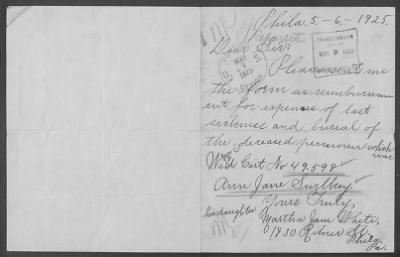 Phila. 5-6-1925.
Dear Sir:
Please sent me
the form as reimbursem
ent for expenses of last
sickness and burial of
the deceased pensioner which
was
Wid Cert No 49.598
Ann Jane
Yours Truly,
her daughter
Martha Jane White,
1830 Ritner St.
Phila.
Pa.